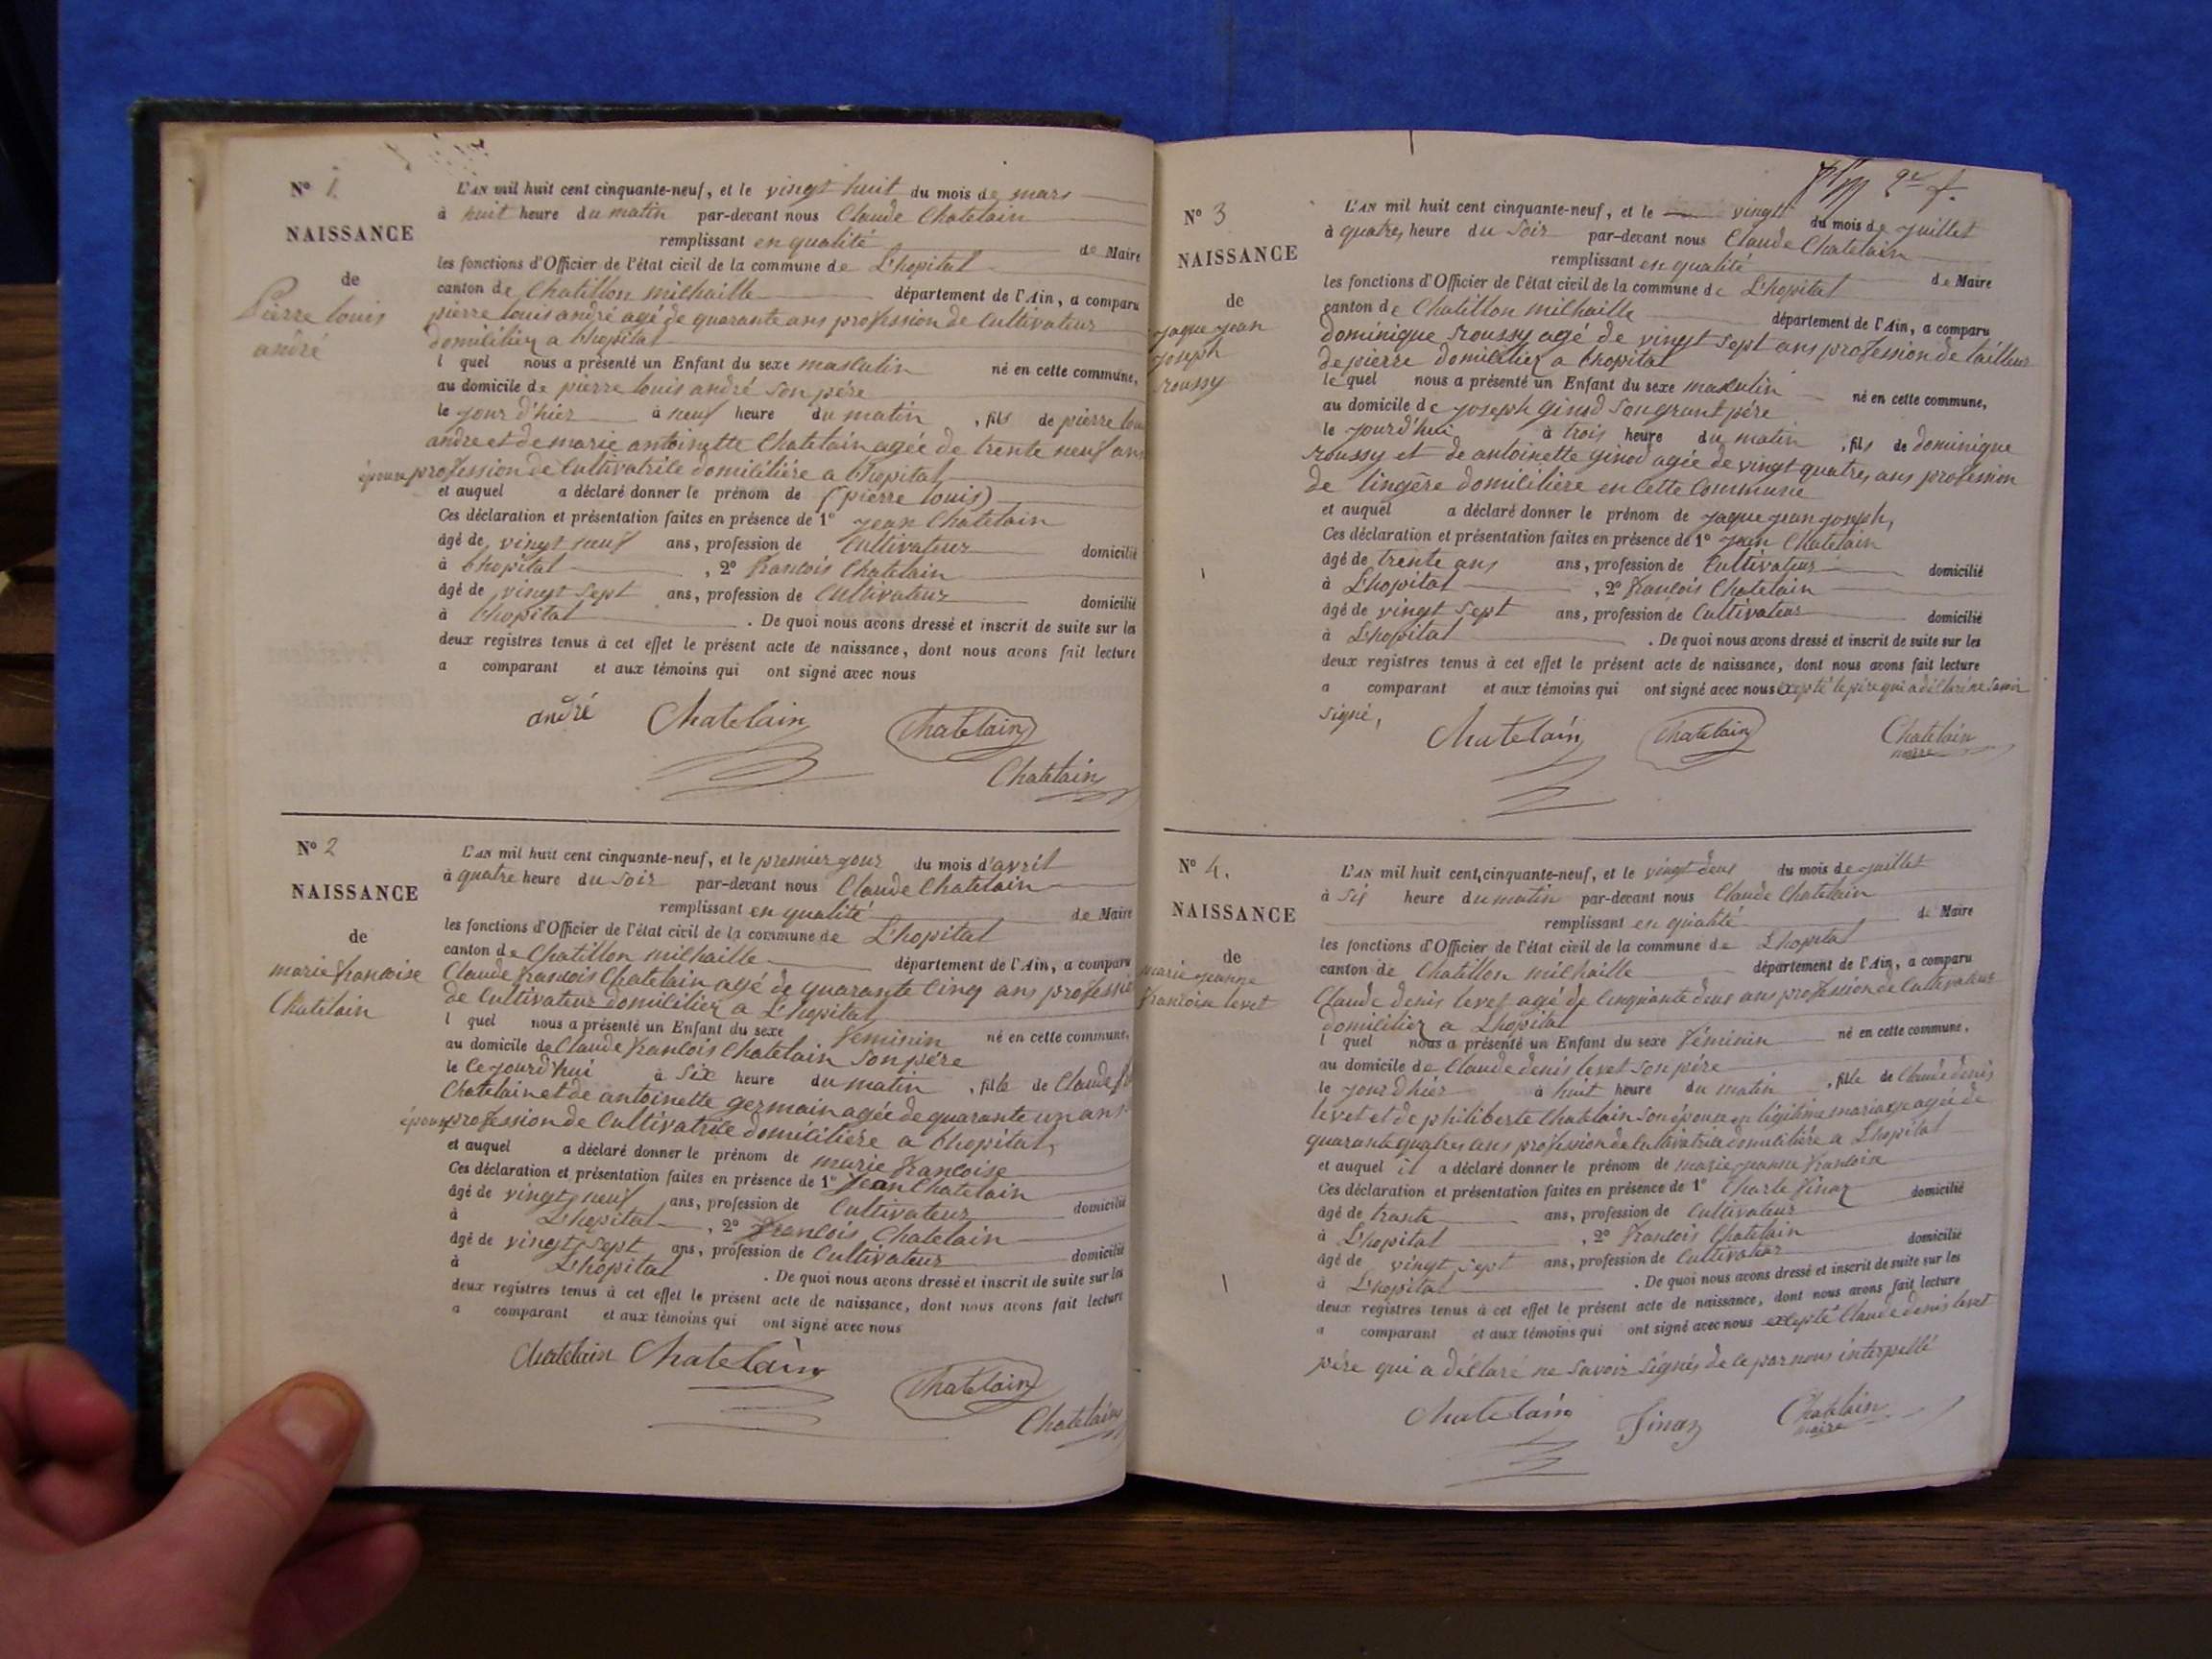 N° 1.
NAISSANCE
de
Pierre louis
andré
L'AN mil huit cent cinquante-neuf, et le vingt huit du mois de mars
à huit heure du matin par-devant nous Claude Chatelain
remplissant en qualité de Maire
les fonctions d'Officier de l'état civil de la commune de L'hopital
canton de Chatillon michaille département de l'Ain, a comparu
pierre louis andré agé de quarante ans profession de Cultivateur
domicilier a l'hopital
l quel nous a présenté un Enfant du sexe masculin né en cette commune,
au domicile de pierre louis andré son père
le jour d'hier à neuf heure du matin , fils de pierre louis
andre et de marie antoinette Chatelain agée de trente neuf ans
épouse profession de Cultivatrice domicilière a l'hopital
et auquel a déclaré donner le prénom de (pierre louis)
Ces déclaration et présentation faites en présence de 1° jean Chatelain
âgé de vingt neuf ans, profession de Cultivateur domicilié
à l'hopital , 2° francois Chatelain
âgé de vingt sept ans, profession de Cultivateur domicilié
à l'hopital . De quoi nous avons dressé et inscrit de suite sur les
deux registres tenus à cet effet le présent acte de naissance, dont nous avons fait lecture
a comparant et aux témoins qui ont signé avec nous
andré Chatelain Chatelain
Chatelain
N° 2
NAISSANCE
de
marie francoise
Chatelain
L'AN mil huit cent cinquante-neuf, et le premier jour du mois d'avril
à quatre heure du soir par-devant nous Claude Chatelain
remplissant en qualité de Maire
les fonctions d'Officier de l'état civil de la commune de L'hopital
canton de Chatillon michaille département de l'Ain, a comparu
Claude francois Chatelain agé de quarante cinq ans professio
de Cultivateur domicilier a L'hopital
l quel nous a présenté un Enfant du sexe feminin né en cette commune,
au domicile de Claude francois Chatelain son père
le Ce jourd'hui à six heure du matin , fille de Claude f
Chatelain et de antoinette germain agée de quarante un ans
épouse profession de Cultivatrice domicilière a l'hopital
et auquel a déclaré donner le prénom de marie francoise
Ces déclaration et présentation faites en présence de 1° Jean Chatelain
âgé de vingt neuf ans, profession de Cultivateur domicilié
à L'hopital , 2° francois Chatelain
âgé de vingt sept ans, profession de Cultivateur domicilié
à L'hopital . De quoi nous avons dressé et inscrit de suite sur les
deux registres tenus à cet effet le présent acte de naissance, dont nous avons fait lecture
a comparant et aux témoins qui ont signé avec nous
Chatelain Chatelain
Chatelain
Chatelain
N° 3
NAISSANCE
de
jaque jean
joseph
roussy
L'AN mil huit cent cinquante-neuf, et le vingt du mois de juillet
à quatres heure du soir par-devant nous Claude Chatelain
remplissant en qualité de Maire
les fonctions d'Officier de l'état civil de la commune de L'hopital
canton de Chatillon michaille département de l'Ain, a comparu
dominique roussy agé de vingt sept ans profession de tailleur
de pierre domicilier a l'hopital
le quel nous a présenté un Enfant du sexe masculin né en cette commune,
au domicile de joseph ginod son grant père
le jourd'hui à trois heure du matin , fils de dominique
roussy et de antoinette ginod agée de vingt quatres ans profession
de lingère domicilière en Cette Commune
et auquel a déclaré donner le prénom de jaque jean joseph,
Ces déclaration et présentation faites en présence de 1° jean Chatelain
âgé de trente ans ans, profession de Cultivateur domicilié
à L'hopital , 2° francois Chatelain
âgé de vingt sept ans, profession de Cultivateur domicilié
à L'hopital . De quoi nous avons dressé et inscrit de suite sur les
deux registres tenus à cet effet le présent acte de naissance, dont nous avons fait lecture
a comparant et aux témoins qui ont signé avec nous exepté le père qui a déclaré ne savoir
signé,
Chatelain Chatelain Chatelain
maire
N° 4.
NAISSANCE
de
marie jeanne
francoise levet
L'AN mil huit cent cinquante-neuf, et le vingt deux du mois de juillet
à six heure du matin par-devant nous Claude Chatelain
remplissant en qualité de Maire
les fonctions d'Officier de l'état civil de la commune de L'hopital
canton de Chatillon michaille département de l'Ain, a comparu
Claude denis levet agé de cinquante deux ans profession de Cultivateur
domicilier a L'hopital
l quel nous a présenté un Enfant du sexe féminin né en cette commune,
au domicile de Claude denis levet son père
le jour d'hier à huit heure du matin , fille de Claude denis
levet et de philiberte Chatelain son épouse en légitime mariage agée de
quarante quatres ans profession de Cultivatrice domicilière a L'hopital
et auquel il a déclaré donner le prénom de marie jeanne francoise
Ces déclaration et présentation faites en présence de 1° Charle finaz domicilié
âgé de trante ans, profession de Cultivateur
à L'hopital , 2° francois Chatelain
âgé de vingt sept ans, profession de Cultivateur domicilié
à L'hopital . De quoi nous avons dressé et inscrit de suite sur les
deux registres tenus à cet effet le présent acte de naissance, dont nous avons fait lecture
a comparant et aux témoins qui ont signé avec nous exepté Claude denis levet
père qui a déclaré ne savoir signés de ce par nous interpellé
Chatelain finaz Chatelain
maire